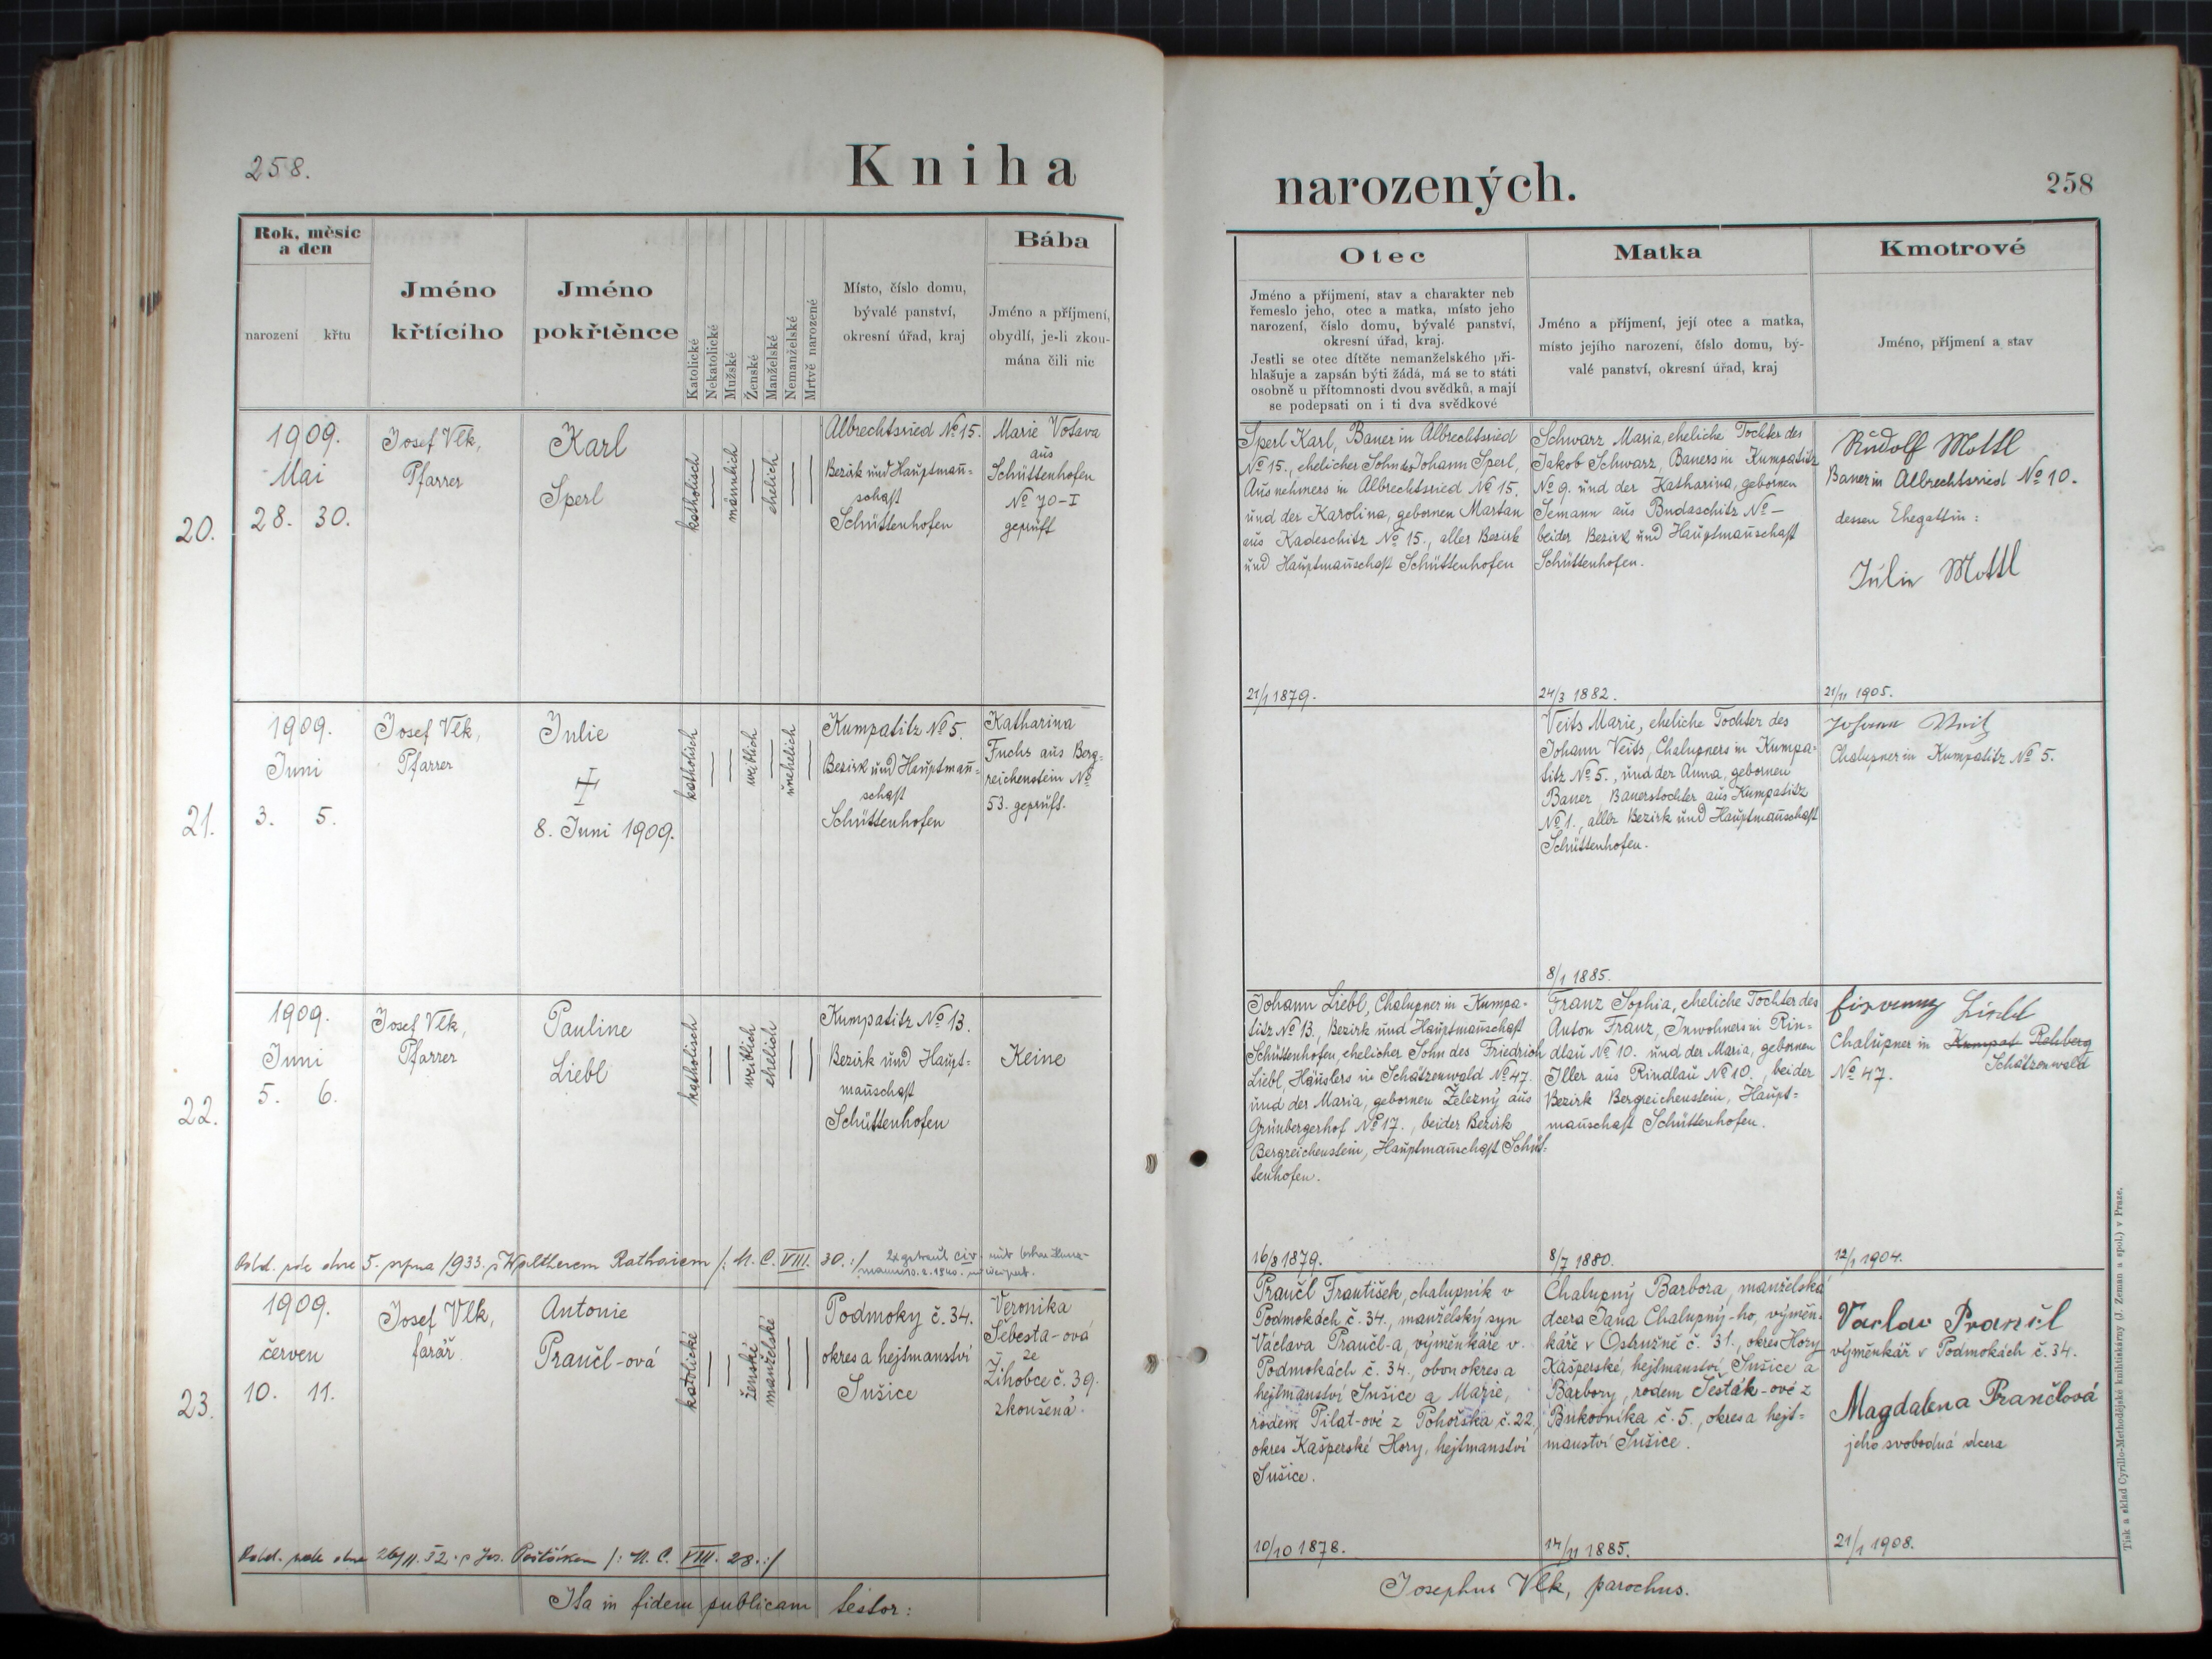 258.
Kniha
narozených.
258
Rok, měsíc
a den
narození
křtu
Jméno
křtícího
Jméno
pokřtěnce
Katolické
Nekatolické
Mužské
Ženské
Manželské
Nemanželské
Mrtvě narozené
Místo, číslo domu,
bývalé panství,
okresní úřad, kraj
Bába
Jméno a příjmení,
obydlí, je-li zkou-
mána čili nic
Otec
Jméno a příjmení, stav a charakter neb
řemeslo jeho, otec a matka, místo jeho
narození, číslo domu, bývalé panství,
okresní úřad, kraj.
Jestli se otec dítěte nemanželského při-
hlašuje a zapsán býti žádá, má se to státi
osobně u přítomnosti dvou svědků, a mají
se podepsati on i ti dva svědkové
Matka
Jméno a příjmení, její otec a matka,
místo jejího narození, číslo domu, bý-
valé panství, okresní úřad, kraj
Kmotrové
Jméno, příjmení a stav
20.
1909.
Mai
28. 30.
Josef Vlk,
Pfarrer
Karl
Sperl
katholisch
männlich
ehelich
Albrechtsried No 15.
Bezirk und Hauptmann=
schaft
Schüttenhofen
Marie Votava
aus
Schüttenhofen
No 70-I
geprüft
Sperl Karl, Bauer in Albrechtsried
No 15., ehelicher Sohn des Johann Sperl,
Ausnehmers in Albrechtsried No 15.
und der Karolina, gebornen Martan
aus Kadeschitz No 15., aller Bezirk
und Hauptmannschaft Schüttenhofen
21/1 1879.
Schwarz Maria, eheliche Tochter des
Jakob Schwarz, Bauers in Kumpatitz
No 9. und der Katharina, gebornen
Jemann aus Budaschitz No –
beider Bezirk und Hauptmannschaft
Schüttenhofen.
24/3 1882.
Rudolf Mottl
Bauer in Albrechtsried No 10.
dessen Ehegattin:
Julie Mottl
21/11 1905.
21.
1909.
Juni
3. 5.
Josef Vlk,
Pfarrer
Julie
8. Juni 1909.
katholisch
weiblich
unehelich
Kumpatitz No 5.
Bezirk und Hauptman̄=
schaft
Schüttenhofen
Katharina
Fuchs aus Berg=
reichenstein No
53. geprüft.
Veits Marie, eheliche Tochter des
Johann Veits, Chalupners in Kumpa=
titz No 5., und der Anna, gebornen
Bauer, Bauerstochter aus Kumpatitz
No 1., aller Bezirk und Hauptmannschaft
Schüttenhofen.
8/1 1885.
Johann Veits
Chalupner in Kumpatitz No 5.
22.
1909.
Juni
5. 6.
Josef Vlk,
Pfarrer
Pauline
Liebl
katholisch
weiblich
ehelich
Kumpatitz No 13.
Bezirk und Haupt=
mannschaft
Schüttenhofen
Keine
Johann Liebl, Chalupner in Kumpa-
titz No 13, Bezirk und Hauptmannschaft
Schüttenhofen, ehelicher Sohn des Friedrich
Liebl, Häuslers in Schätzenwald No 47.
und der Maria, gebornen Železný aus
Grünbergerhof No 17., beider Bezirk
Bergreichenstein, Hauptmannschaft Schüt=
tenhofen.
16/8 1879.
Franz Sophia, eheliche Tochter des
Anton Franz, Inwohners in Rin=
dlau No 10. und der Maria, gebornen
Iller aus Rindlau No 10., beider
Bezirk Bergreichenstein, Haupt=
mannschaft Schüttenhofen.
8/7 1880.
Liebl
Chalupner in Kumpat Rehberg
Schätzenwald
No 47.
12/1 1904.
Odd. dne 5. srpna 1933. s Waltherem /: M. C. VIII. 30.:/
2x getraut civ. mit
23.
1909.
červen
10. 11.
Josef Vlk,
farář.
Antonie
Praučl-ová
katolické
ženské
manželské
Podmoky č. 34.
okres a hejtmanství
Sušice
Veronika
Šebesta-ová
ze
Žihobce č. 39.
zkoušená.
Praučl František, chalupník v
Podmokách č. 34., manželský syn
Václava Praučl-a, výměnkáře v
Podmokách č. 34., obou okres a
hejtmanství Sušice a Marie,
rodem Pilat-ové z Pohorska č. 22,
okres Kašperské Hory, hejtmanství
Sušice.
10/10 1878.
Chalupný Barbora, manželská
dcera Jana Chalupný-ho, výměn-
káře v Ostružně č. 31., okres Hory
Kašperské, hejtmanství Sušice a
Barbory, rodem Šesták-ové z
Bukovníka č. 5., okres a hejt=
manství Sušice.
14/11 1885.
Vaclav Praučl
výměnkář v Podmokách č. 34.
Magdalena Praučlová
jeho svobodná dcera
21/1 1908.
Odd. dne 26/11. 32. s Jos. /: M. C. VIII. 28.:/
Ita in fidem publicam testor:
Josephus Vlk, parochus.
Tisk a sklad Cyrillo-Methodějské knihtiskárny (J. Zeman a spol.) v Praze.